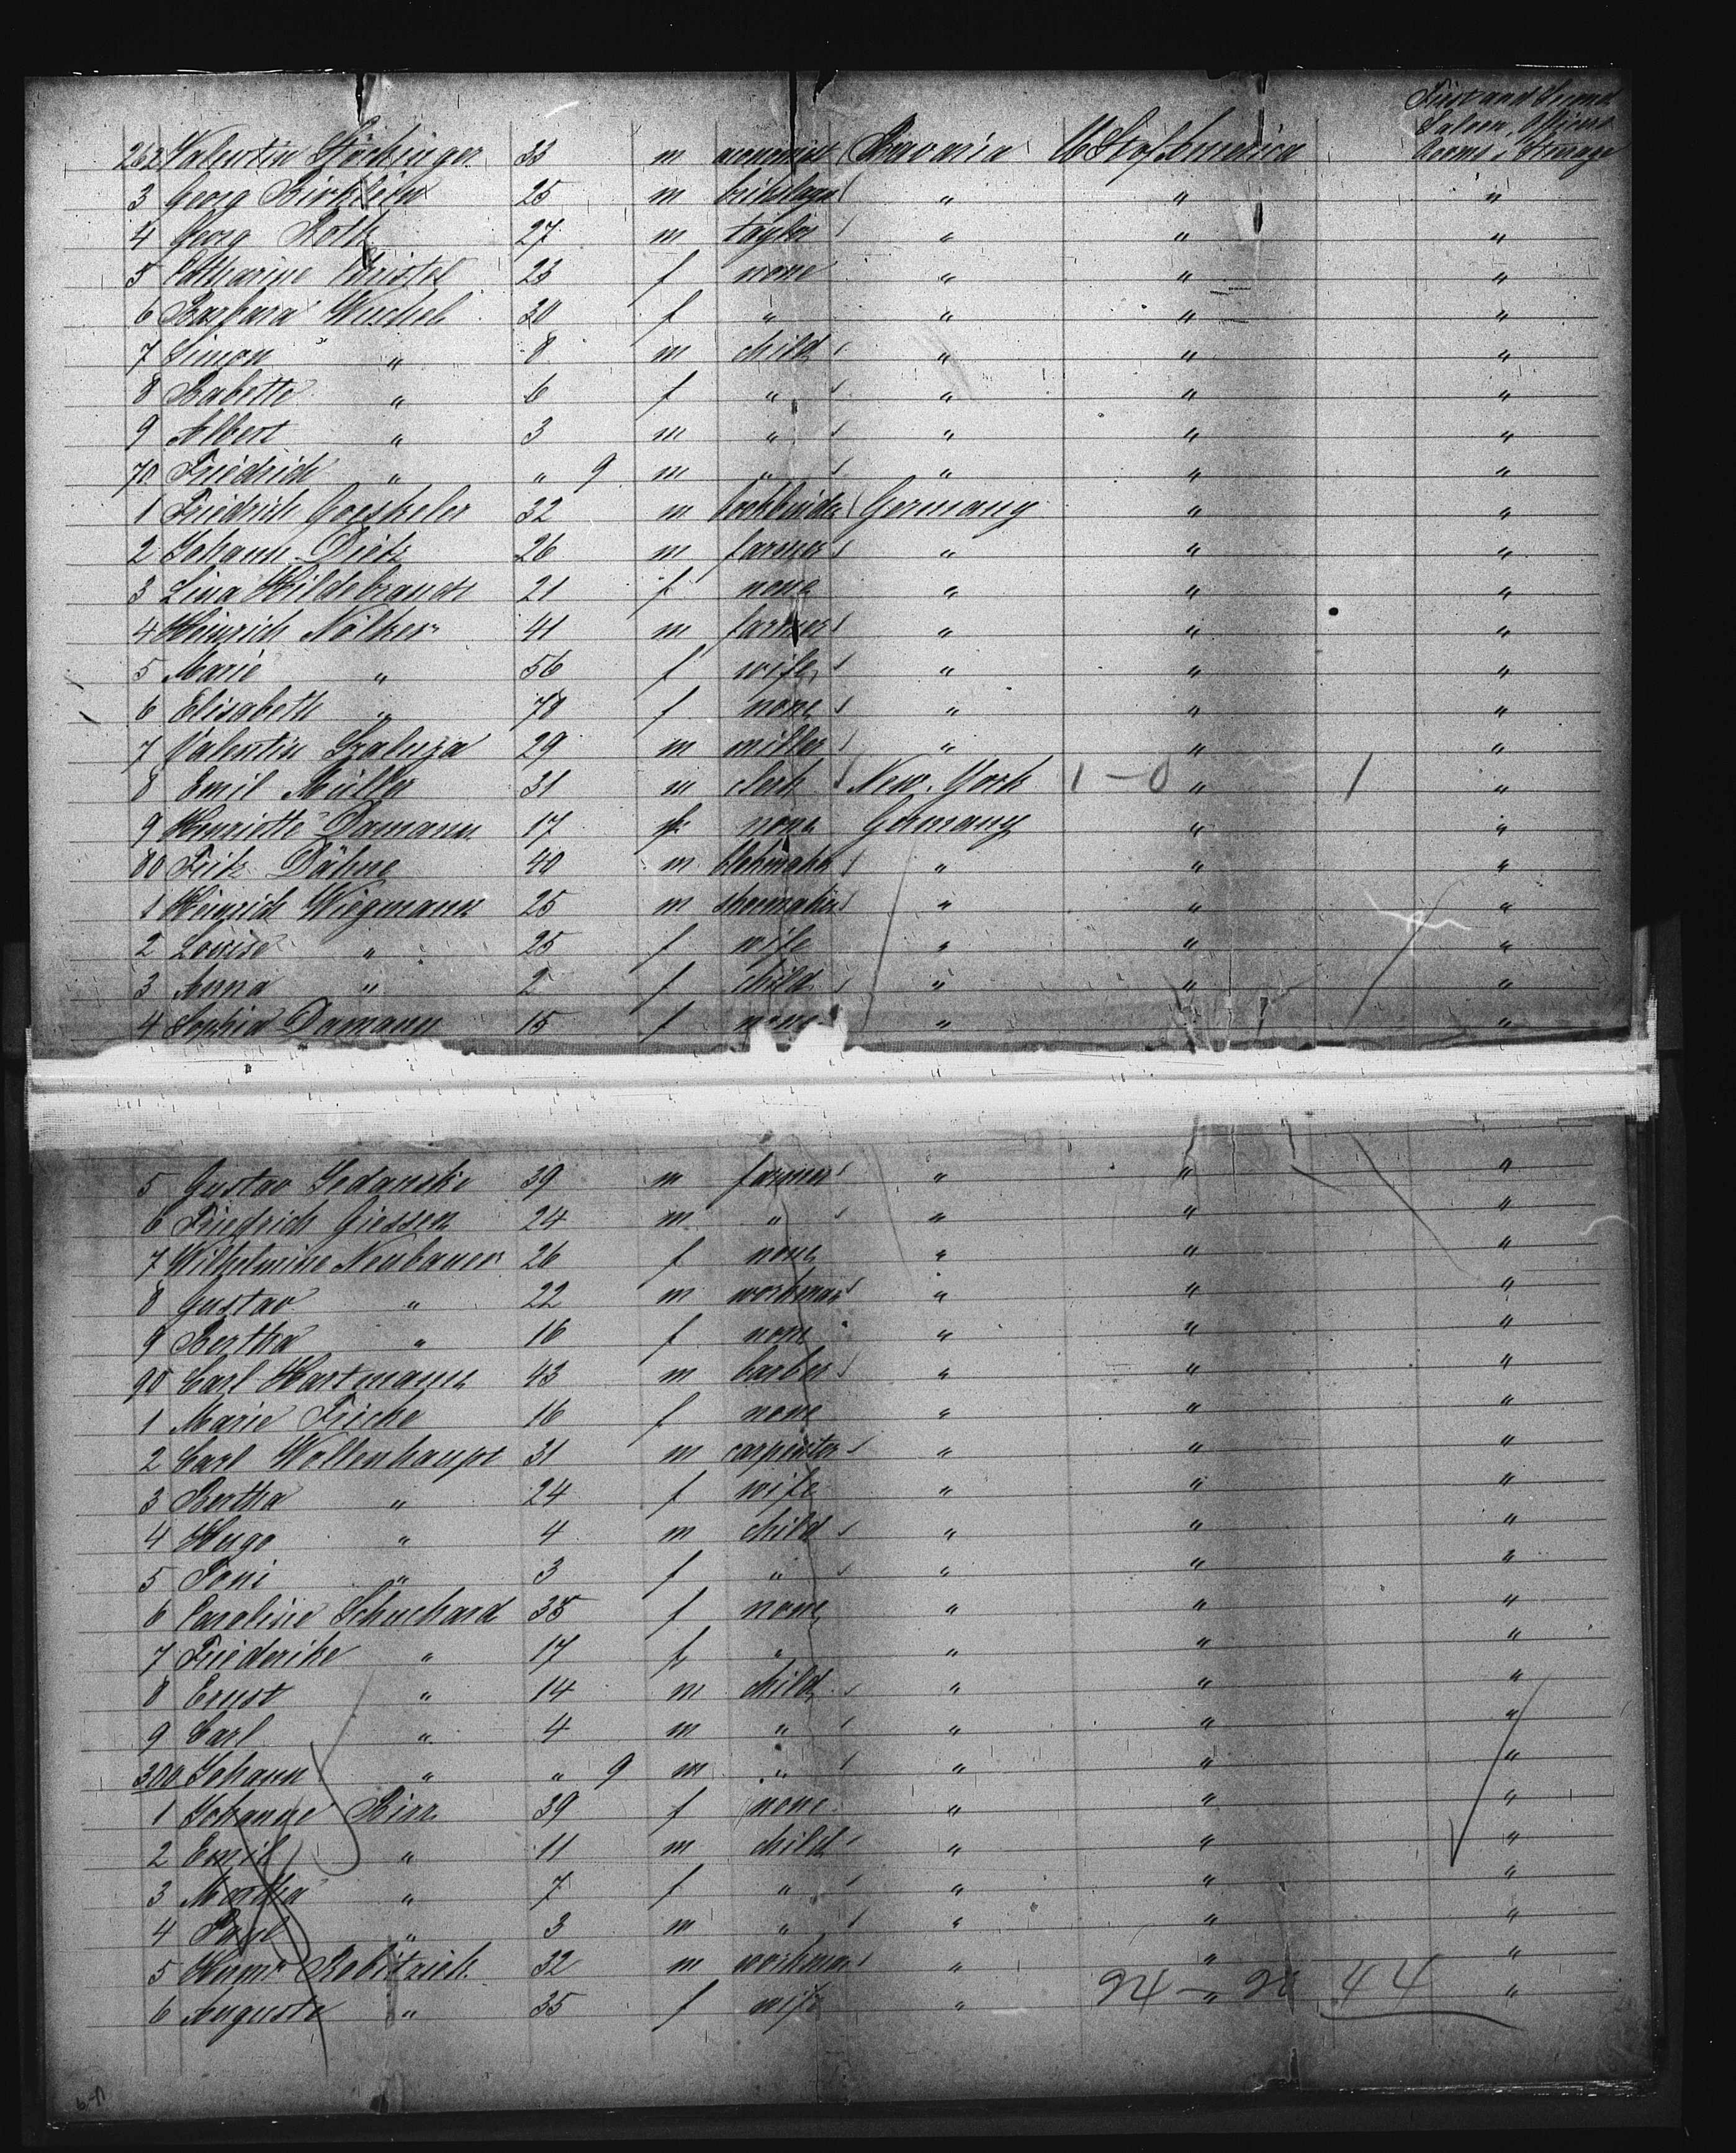 First and Second
Saloon, Officers
Rooms & Steerage
262 Valentin 33 m Bavaria U St of America
3 Georg Birklein 25 m bricklayer " " "
4 Georg Roth 27 m taylor " " "
5 Catharine 23 f none " " "
6 Barbara Wuschel 30 f " " " "
7 Simon " 8 m child " " "
8 Babette " 6 f " " " "
9 Albert " 3 m " " " "
70 Friedrich " " 9 m " " " "
1 Friedrich Goeskeler 32 m bookbinder Germany " "
2 Johann Dietz 26 m farmer " " "
3 Lina Hildebrandt 21 f none " " "
4 Heinrich Nölker 41 m farmer " " "
5 Marie " 56 f wife " " "
6 Elisabeth " 78 f none " " "
7 Valentin Szaluza 29 m miller " " "
8 Emil Müller 31 m clerk New-York 1-0 " 1 "
9 Henriette Damann 17 f none Germany " "
80 Fritz Dähne 40 m " " "
1 Heinrich Wiegmann 25 m shoemaker " " "
2 Louise " 25 f wife " " "
3 Anna " 2 f child " " "
4 Sophia Damann 15 f none " "
5 Gustav Sedanski 39 m farmer " " "
6 Friedrich Giessen 24 m " " " "
7 Wilhelmine Neubauer 26 f none " " "
8 Gustav " 22 m workman " " "
9 Bertha " 16 f none " " "
90 Carl Hartmann 43 m barber " " "
1 Marie Fricke 16 f none " " "
2 Carl Wollenhaupt 31 m carpenter " " "
3 Bertha " 24 f wife " " "
4 Hugo " 4 m child " " "
5 Toni " 3 f " " " "
6 Caroline Schuchard 35 f none " " "
7 Friederike " 17 f " " " "
8 Ernst " 14 m child " " "
9 Carl " 4 m " " " "
300 Johann " " 9 m " " " "
1 Johanne Birr 39 f none " " "
2 Emil " 11 m child " " "
3 Martha " 7 f " " " "
4 Paul " 3 m " " " "
5 Herm. 32 m workman " " "
6 Auguste " 35 f wife " 24 - " 20 44 "